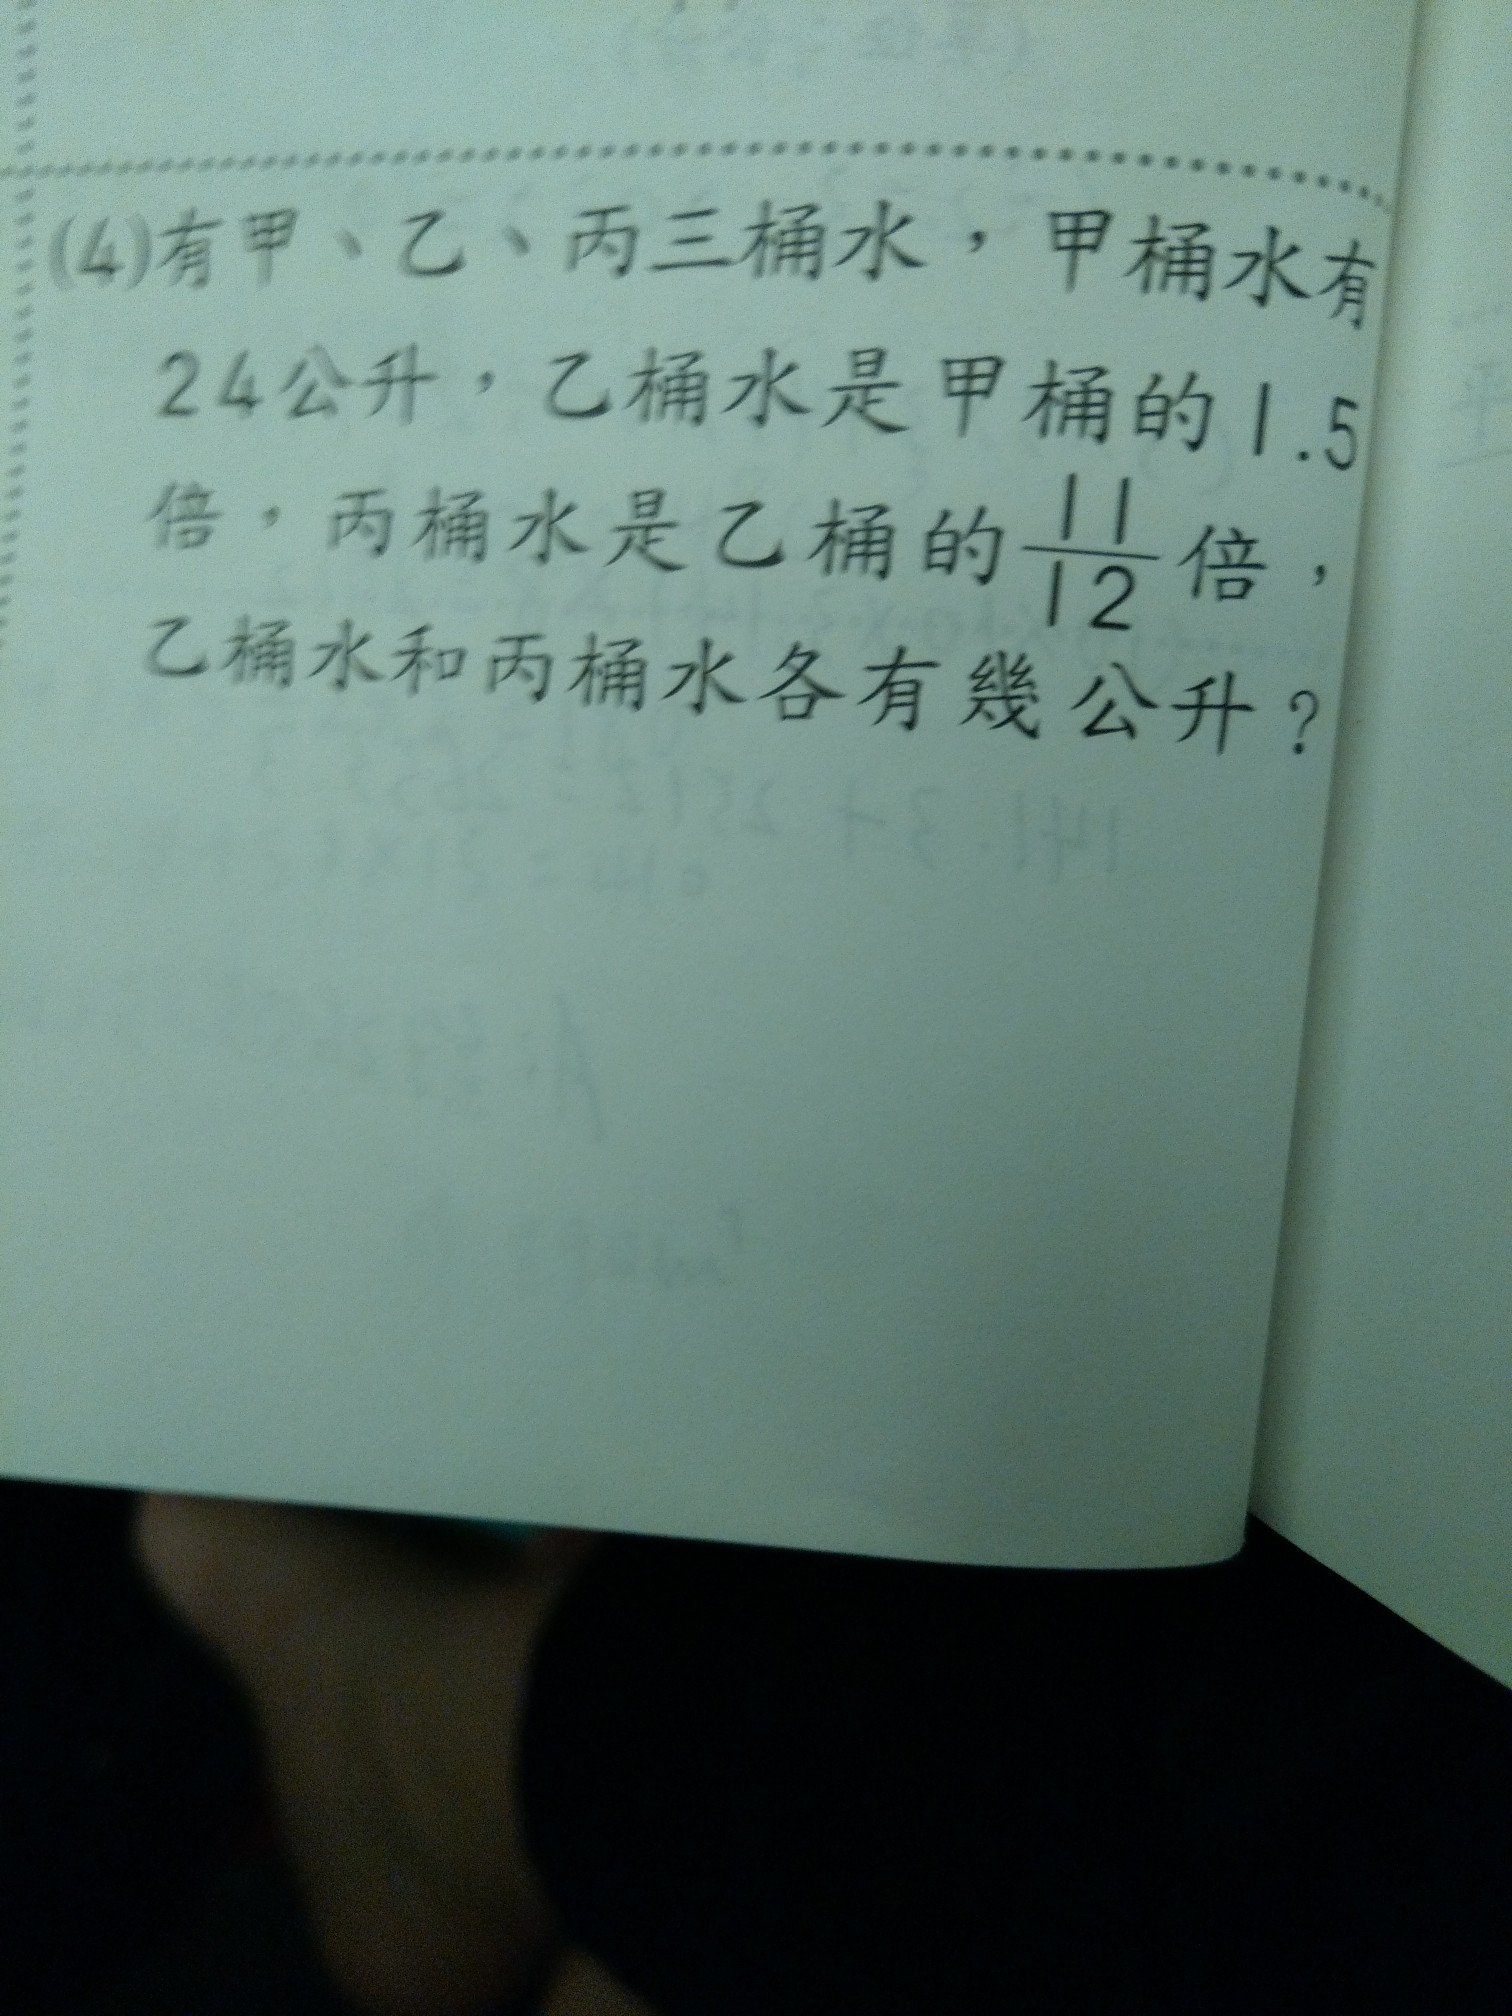 (4)有甲、乙、丙三桶水，甲桶水有
24公升，乙桶水是甲桶的1.5
倍，丙桶水是乙桶的11/12倍，
乙桶水和丙桶水各有幾公升？